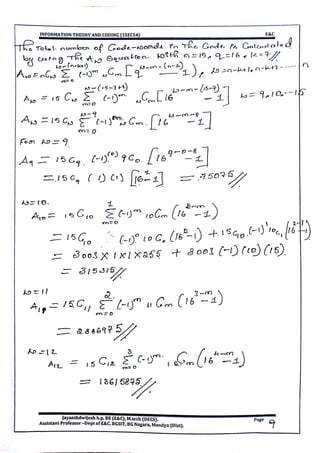 INFORMATION THEORY AND CODING (15EC54) E&C
The Total number of Code-words in The Code is Calculated
by using The Aω Equation. With n=15, q=16, k=7//
Aω = nCω Σ (-1)^m ωCm [q^(ω-m-(n-k)) - 1], ω = n-k+1, n-k+2 ---- n
Aω = 15Cω Σ m=0 (-1)^m ωCm [16^(ω-m-(15-7)) - 1] ω = 9,10...15
Aω = 15Cω Σ m=0 ω-9 (-1)^m ωCm. [16^(ω-m-8) - 1]
For ω = 9.
A9 = 15C9. (-1)^0 9C0. [16^(9-0-8) - 1]
= 15C9 (1) (1) [16^1 - 1] = 75075//
ω = 10.
A10 = 15C10 Σ m=0 1 (-1)^m 10Cm (16^(2-m) - 1)
= 15C10 (-1)^0 10C0 (16^2 - 1) + 15C10 (-1)^1 10C1 (16^(2-1) - 1)
= 3003 X 1 X 1 X 255 + 3003 (-1) (10) (15)
= 315315//
ω = 11
A11 = 15C11 Σ m=0 2 (-1)^m 11Cm (16^(3-m) - 1)
= 2886975//
ω = 12
A12 = 15C12 Σ m=0 3 (-1)^m. Cm (16^(4-m) - 1)
= 18615875//
Jayanthdwijesh h.p, BE (E&C), M.tech (DECS). Page 9
Assistant Professor –Dept of E&C. BGSIT, BG Nagara, Mandya (Dist).